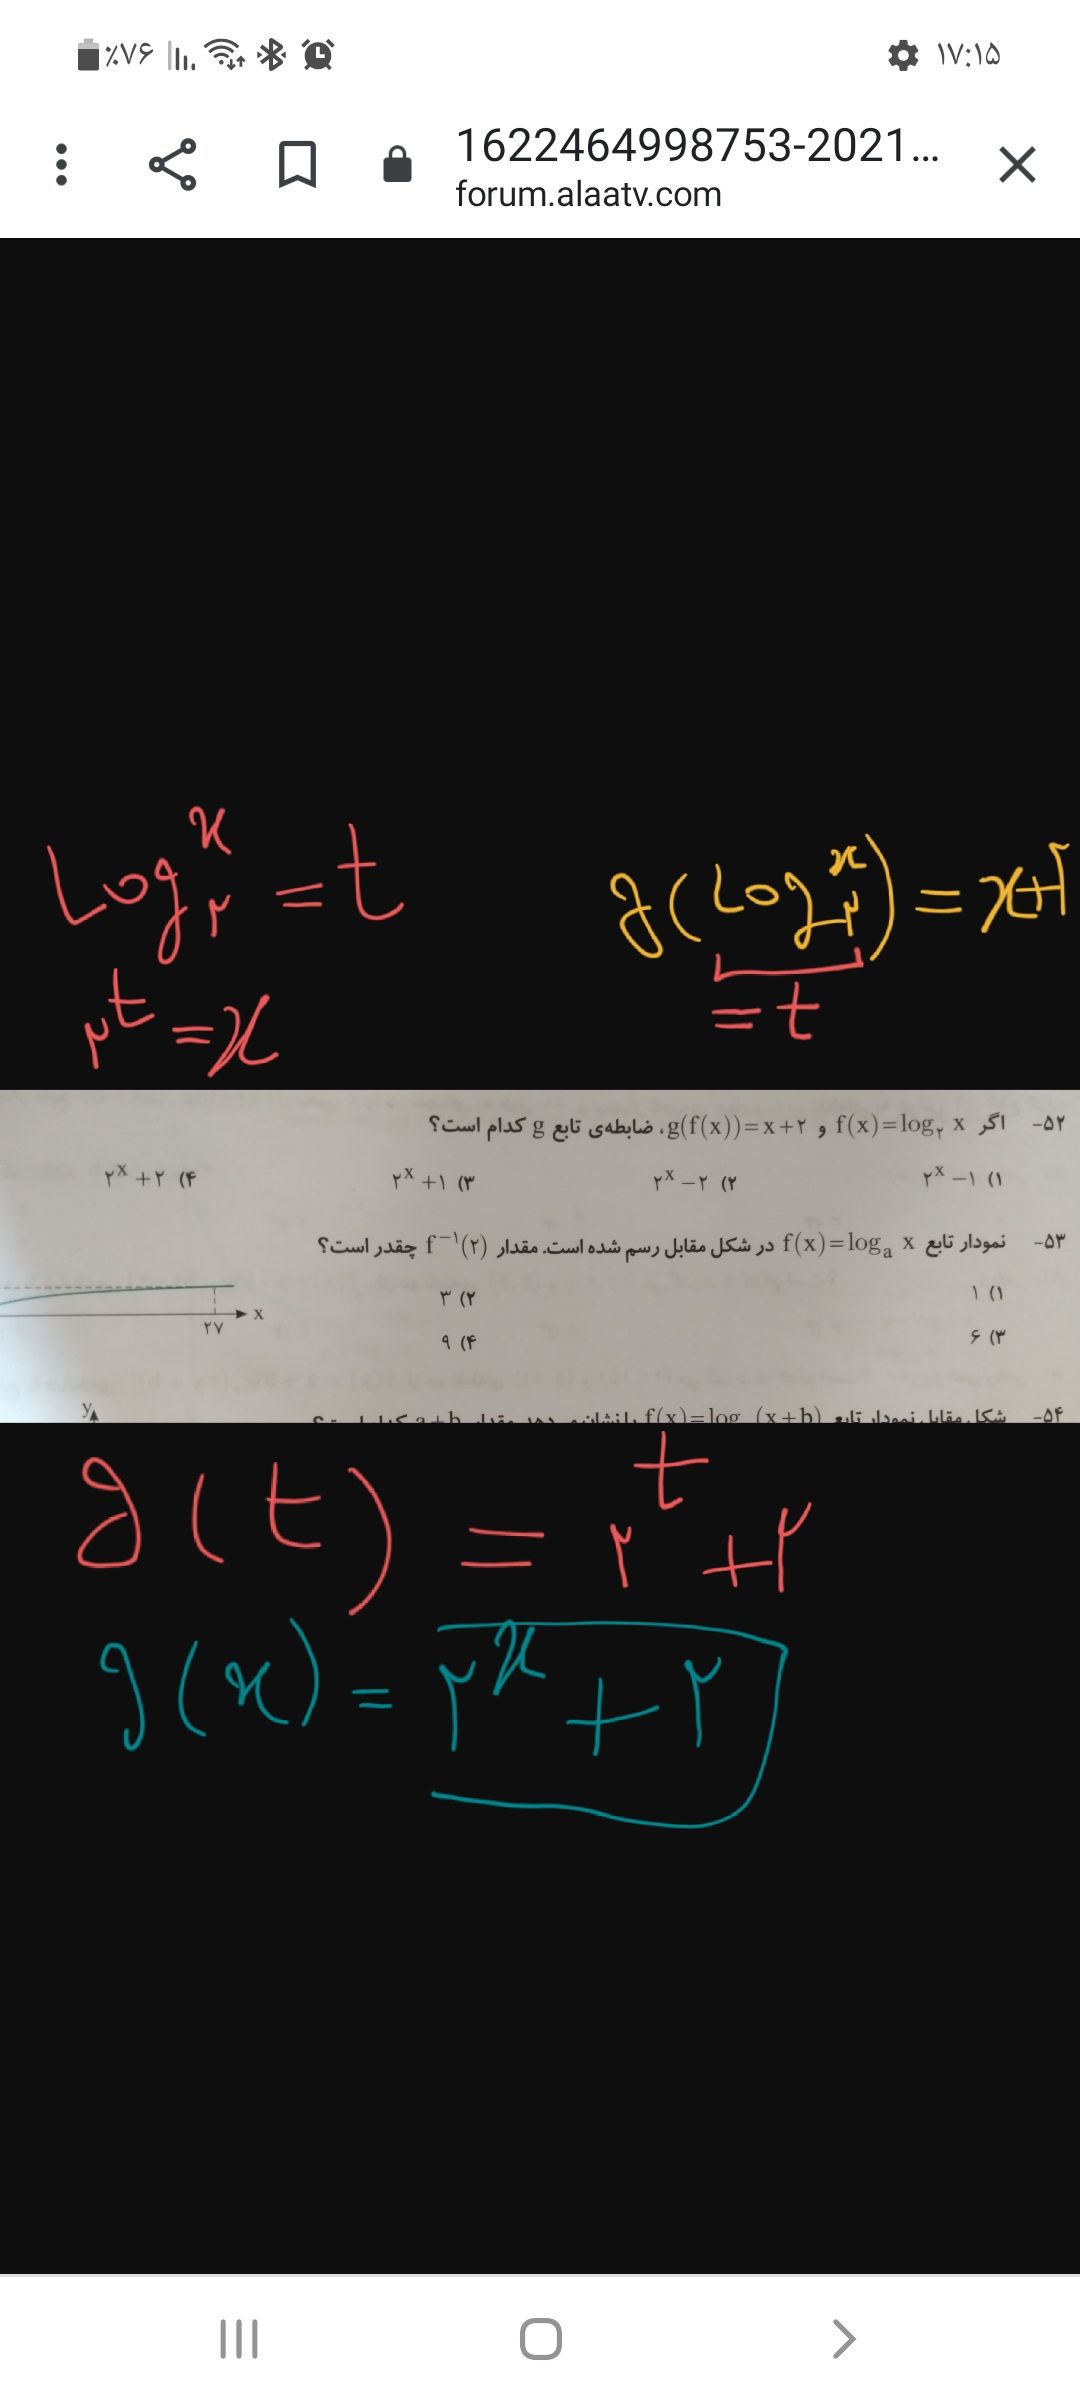 ٪۷۶ ۱۷:۱۵
1622464998753-2021...
forum.alaatv.com
Log₂ˣ = t
g(Log₂ˣ) = x+۲
۲ᵗ = x
= t
۵۲- اگر f(x)=log₂ x و g(f(x))=x+۲، ضابطه‌ی تابع g کدام است؟
۱) ۲ˣ −۱ ۲) ۲ˣ −۲ ۳) ۲ˣ +۱ ۴) ۲ˣ +۲
۵۳- نمودار تابع f(x)=logₐ x در شکل مقابل رسم شده است. مقدار f⁻¹(۲) چقدر است؟
۱) ۱ ۲) ۳
x
۲۷
۳) ۶ ۴) ۹
y
۵۴- شکل مقابل نمودار تابع f(x)=log (x+b) را نشان می‌دهد. مقدار a+b کدام است؟
g(t) = ۲ᵗ +۲
g(x) = ۲ˣ + ۲